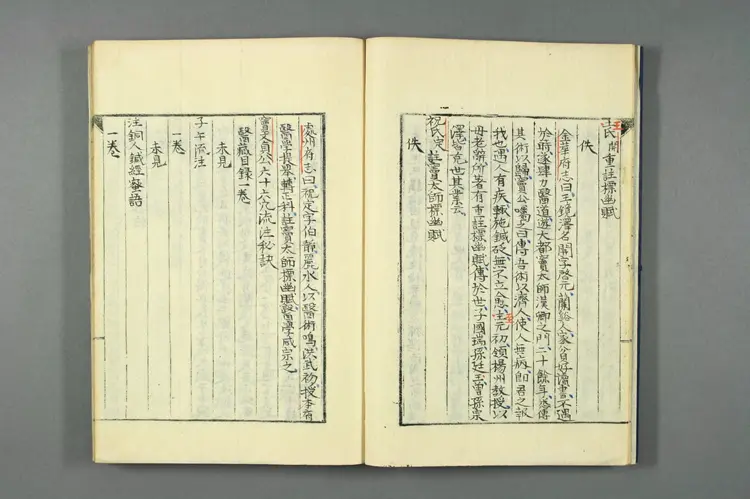 王氏開重註標幽賦
佚
金華府志曰王鏡潭名開字啓元蘭谿人家貧好讀書不遇
於時遂肆力醫道遊大都竇太師漢卿之門二十餘年悉傳
其術以歸竇公囑之曰傳吾術以濟人使人無病即君之報
我也遇人有疾輒施鍼砭無不立愈至元初領揚州教授以
母老辭所著有重註標幽賦傳於世子國瑞孫廷玉曾孫宗
澤皆克世其業云
祝氏定註竇太師標幽賦
佚
處州府志曰祝定字伯靜麗水人以醫術鳴洪武初授本府
醫學提舉轉正科註竇太師標幽賦醫學咸宗之
竇文貞公六十六穴流注秘訣
醫藏目錄一卷
未見
子午流注
一卷
未見
注銅人鍼經密語
一卷